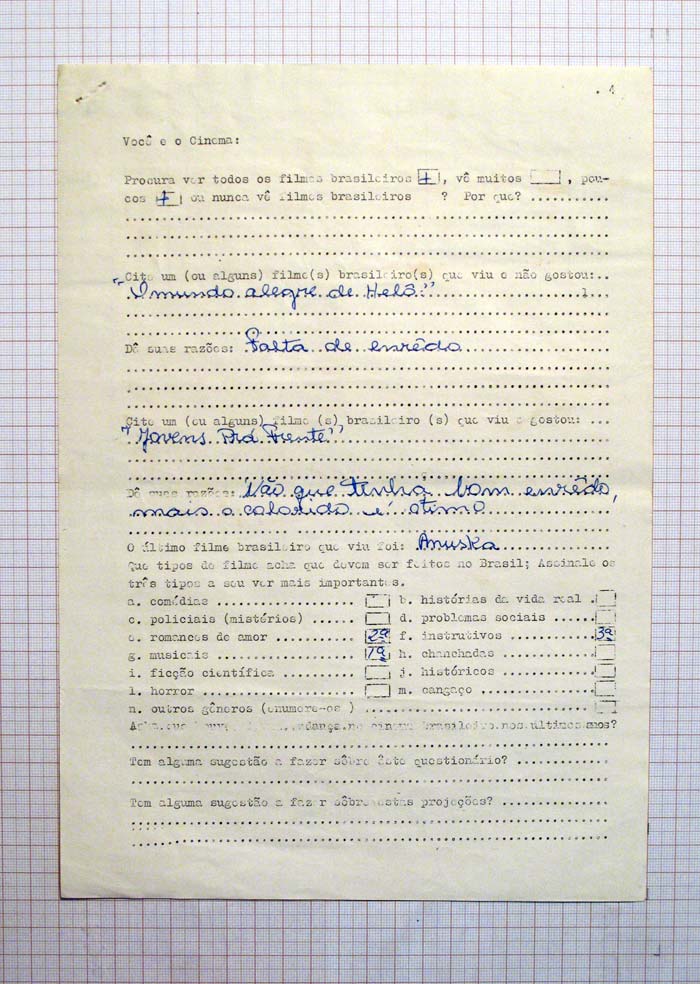 . 4
Você e o Cinema:
Procura ver todos os filmes brasileiros [+], vê muitos [ ] , pou-
cos [+] ou nunca vê filmes brasileiros ? Por que? ...........
Cite um (ou alguns) filme(s) brasileiro(s) que viu e não gostou:..
"O mundo alegre de Helô"
Dê suas razões: Falta de enrêdo
Cite um (ou alguns) filme (s) brasileiro (s) que viu e gostou: ...
"Jovens Prá Frente"
Dê suas razões: Não que tenha bom enrêdo,
mais o colorido e' otimo
O último filme brasileiro que viu foi: Anuska
Que tipos de filme acha que devem ser feitos no Brasil; Assinale os
três tipos a seu ver mais importantes.
a. comédias ..................... [ ] b. histórias da vida real . [ ]
c. policiais (mistérios) ....... [ ] d. problemas sociais ...... [ ]
e. romances de amor ............ [2º] f. instrutivos ........... [3º]
g. musicais .................... [1º] h. chanchadas ............ [ ]
i. ficção científica ........... [ ] j. históricos ............ [ ]
l. horror ...................... [ ] m. cangaço ............... [ ]
n. outros gêneros (enumere-os ) .............................. [ ]
Acha que houve mudança no cinema brasileiro nos últimos anos?
Tem alguma sugestão a fazer sôbre êste questionário? .............
Tem alguma sugestão a fazer sôbre estas projeções? ...............